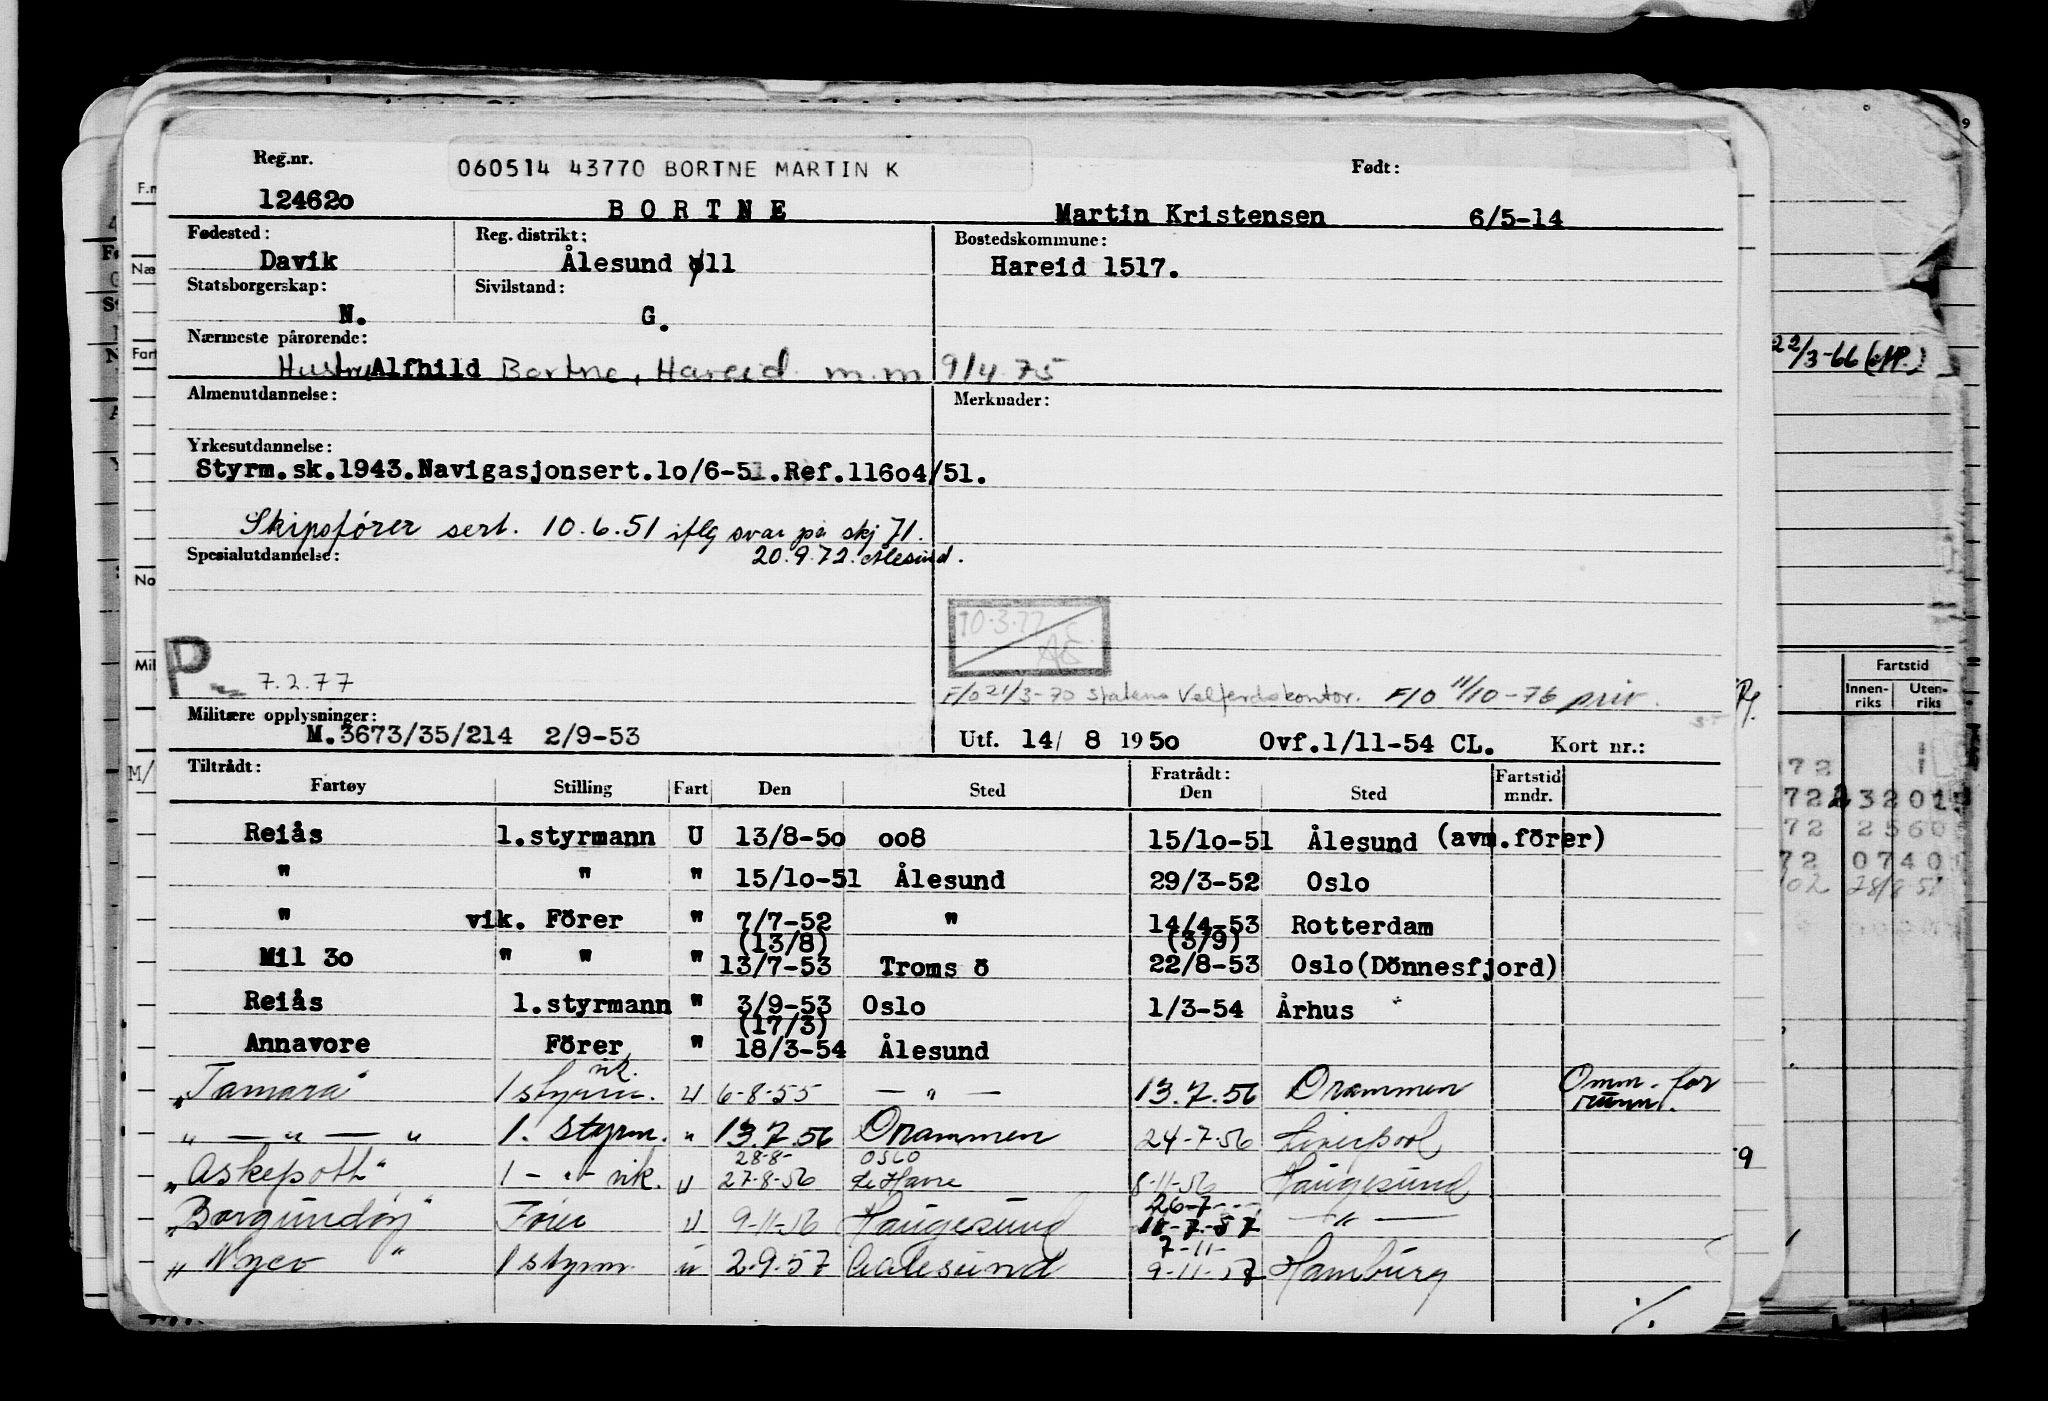 Reg.nr. 060514 43770 BORTNE MARTIN K Født:
124620 BORTNE Martin Kristensen 6/5-14
Fødested: Reg. distrikt: Bostedskommune:
Davik Ålesund 11 Hareid 1517.
Statsborgerskap: Sivilstand:
N. G.
Nærmeste pårørende:
Hustru Alfhild Bortne, Hareid m.m 9/4 75
22/3-66
Almenutdannelse: Merknader:
Yrkesutdannelse:
Styrm.sk.1943.Navigasjonsert.1o/6-51.Ref.116o4/51.
Skipsfører sert. 10.6.51 iflg svar på skj 71.
Spesialutdannelse: 20.9.72. Ålesund.
10.3.77
P 7.2.77
F/O 21/3-70 Statens Velferdskontor. F/O 11/10-76 priv.
Militære opplysninger:
M.3673/35/214 2/9-53 Utf. 14/ 8 1950 Ovf.1/11-54 CL. Kort nr.:
Tiltrådt: Fratrådt: Fartstid
Fartøy Stilling Fart Den Sted Den Sted mndr.
Reiås 1.styrmann U 13/8-5o oo8 15/1o-51 Ålesund (avm.förer)
" " " 15/1o-51 Ålesund 29/3-52 Oslo
" vik. Förer " 7/7-52 " 14/4-53 Rotterdam
(13/8) (3/9)
Mil 3o " " " 13/7-53 Troms ö 22/8-53 Oslo(Dönnesfjord)
Reiås 1.styrmann " 3/9-53 Oslo 1/3-54 Århus
(17/3)
Annavore Förer " 18/3-54 Ålesund
vik.
"Tamara" 1 styrm. U 6-8-55 — " — 13.7.56 Drammen Omm. for
rumm.
" — " — " 1. styrm. " 13.7.56 Drammen 24-7-56 Liverpool
28-8- OSLO
"Askepott" 1 - " - vik. U 27-8-56 Le Havre 8-11-56 Haugesund
26-7- - -
"Borgundöy" Förer U 9-11-56 Haugesund 11-7-57 — " —
7-11-
"Nyco" 1 styrm. U 2.9.57 Aalesund 9-11-57 Hamburg
./.
Fartstid
Innen-riks Uten-riks